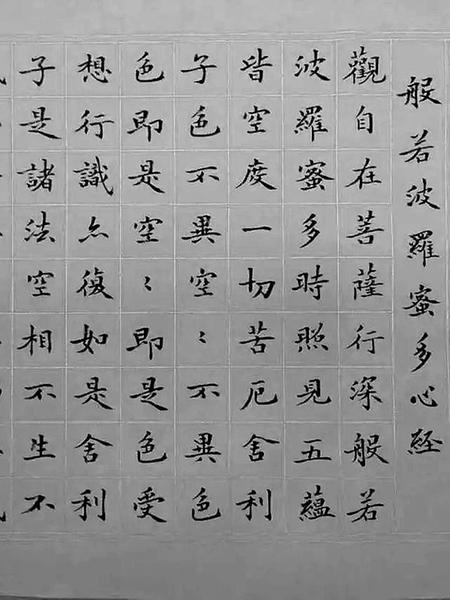 般若波羅蜜多心経
觀自在菩薩行深般若
波羅蜜多時照見五蘊
皆空度一切苦厄舍利
子色不異空〻不異色
色即是空〻即是色受
想行識亦復如是舍利
子是諸法空相不生不